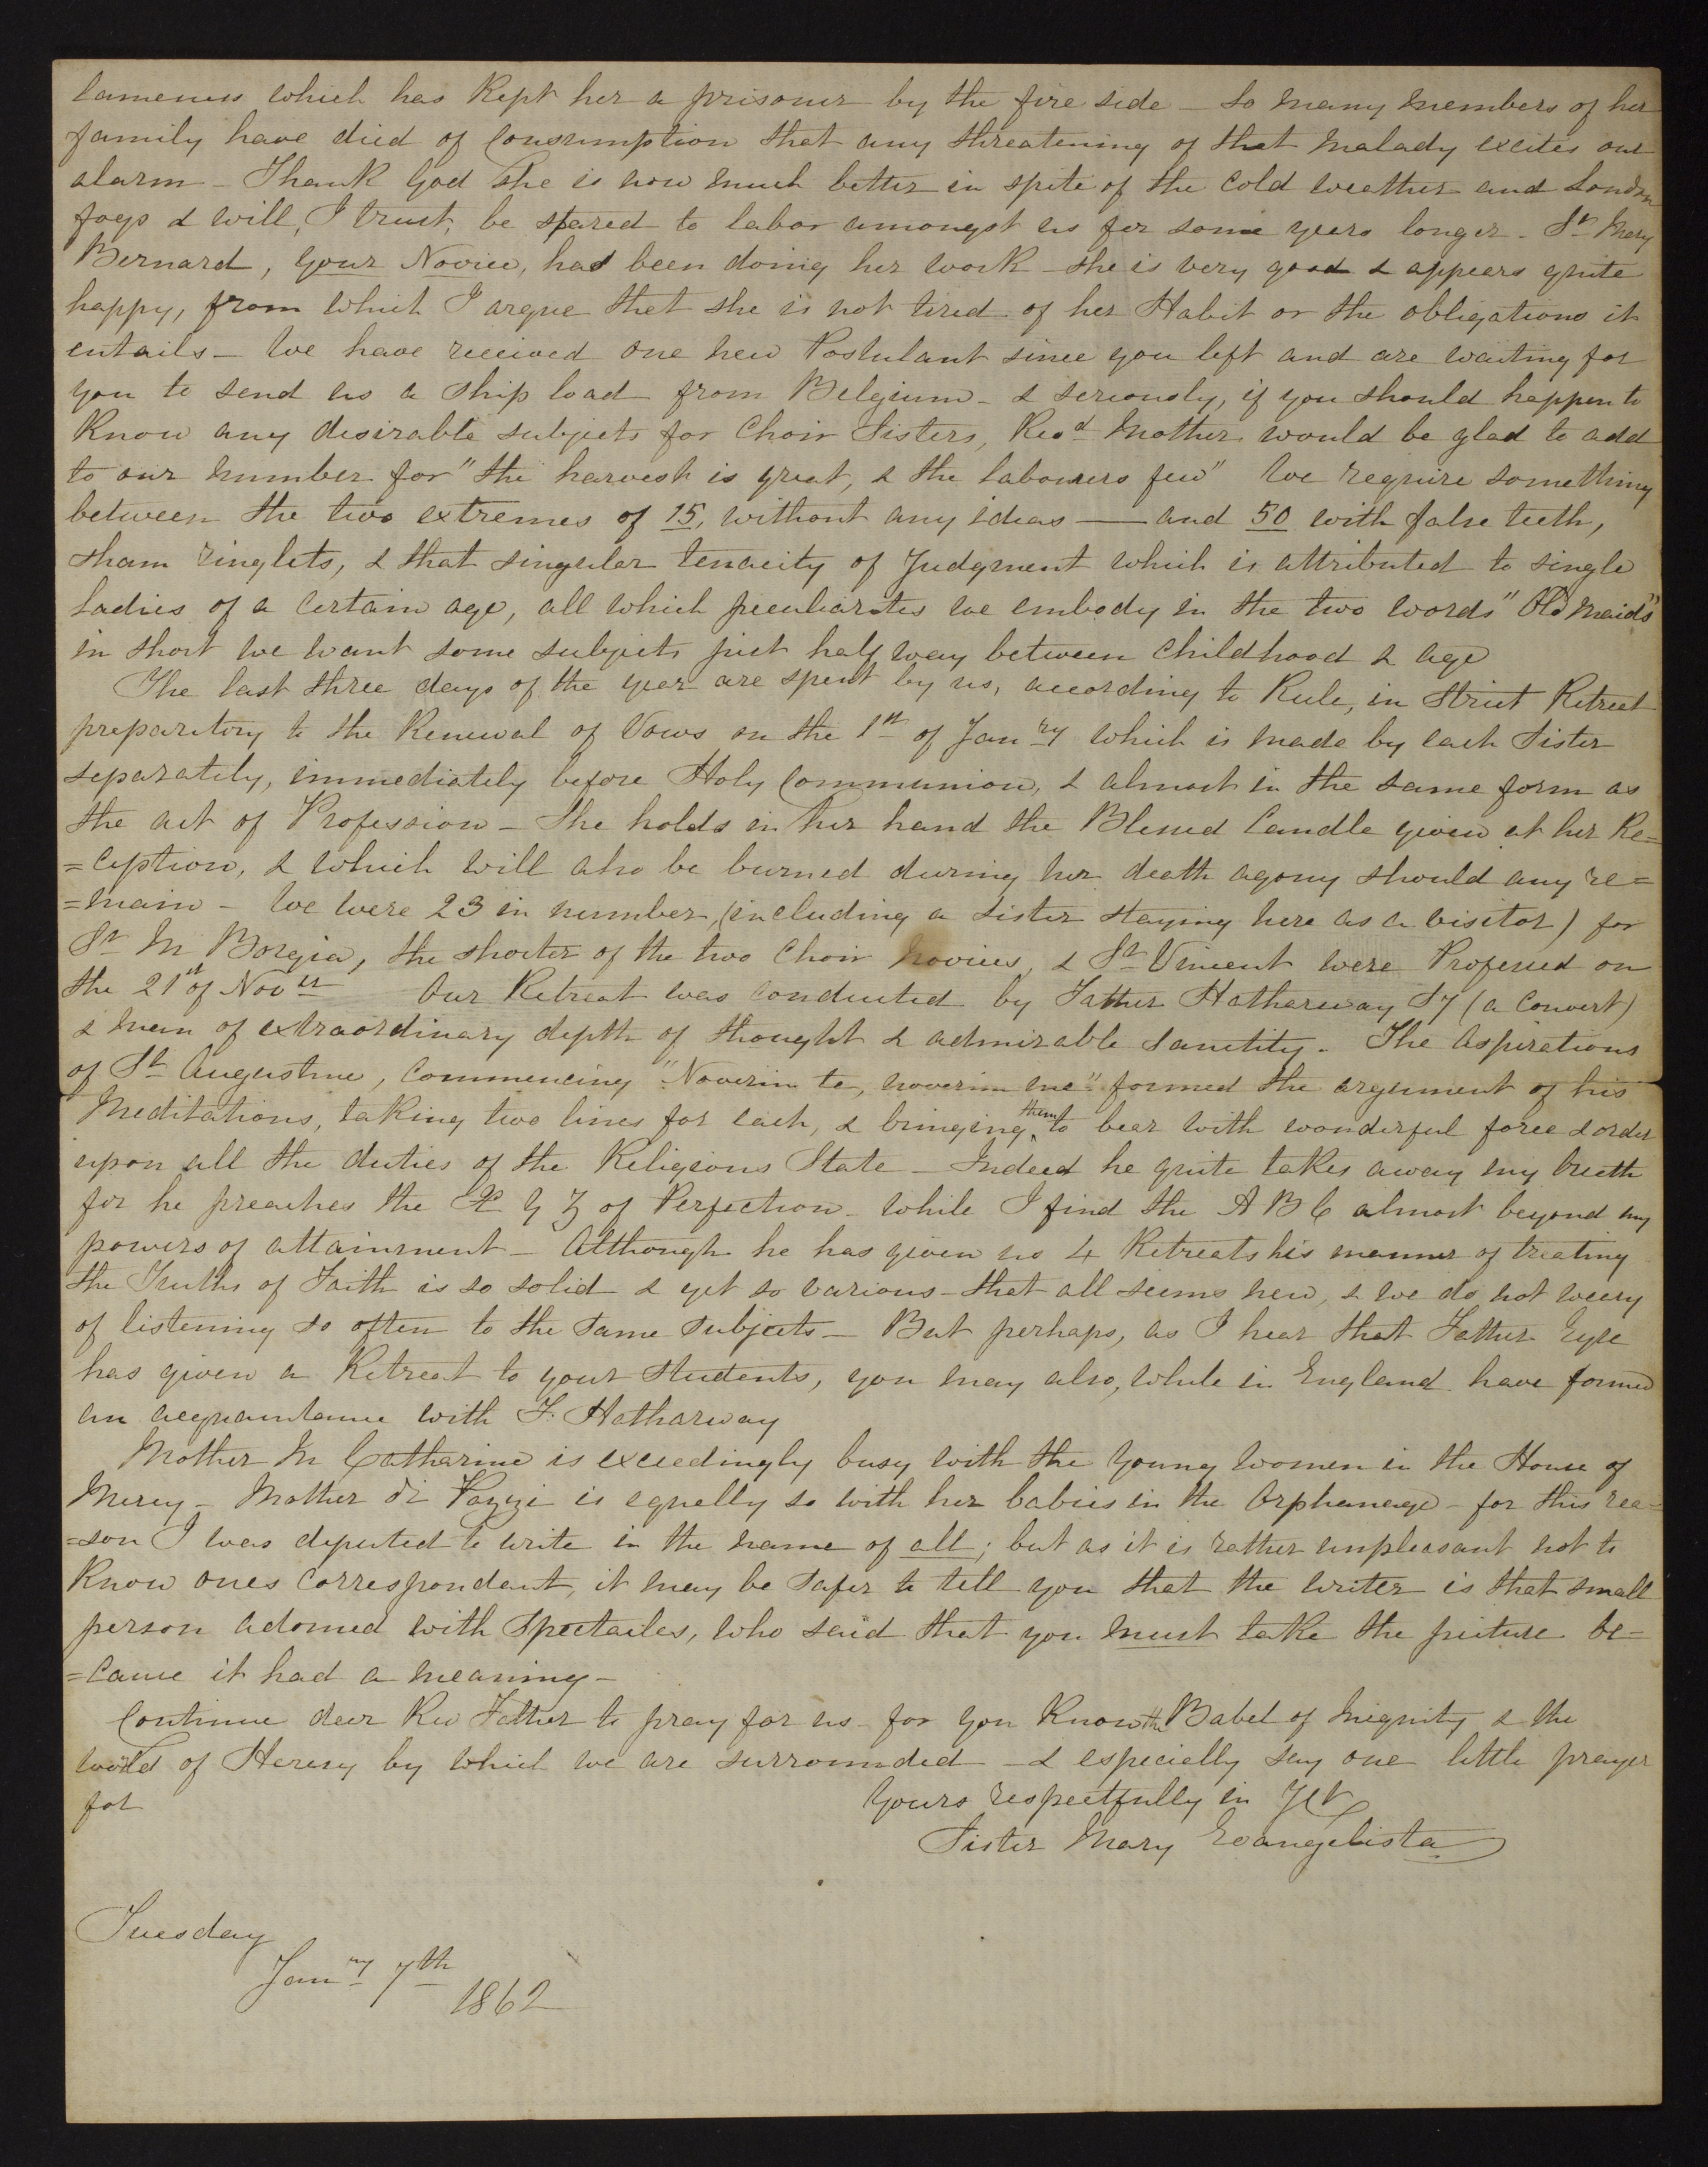 lameness which has Kept her a prisoner by the fire side – So many members of her
family have died of Consumption that any threatening of that Malady excites our
alarm – Thank God She is now much better in spite of the Cold weather and London
fogs & will, I trust, be spared to labor amongst us for some years longer – Sr Mary
Bernard, your Novice, has been doing her work – she is very good & appears quite
happy, from which I argue that she is not tired of her Habit or the obligations it
entails – We have received one new Postulant since you left and are waiting for
you to send us a Ship load from Belgium – & seriously, if you should happen to
Know any desirable subjects for Choir Sisters, Revd Mother would be glad to add
to our number for "the harvest is great, & the labourers few" We require something
between the two extremes of 15, without any ideas —— and 50 with false teeth,
sham ringlets, & that singular tenacity of Judgment which is attributed to single
Ladies of a Certain age, all which peculiarites we embody in the two words "Old Maids"
in short we want some subjects just half way between Childhood & age
The last three days of the year are spent by us, according to Rule, in Strict Retreat
preparatory to the Renewal of Vows on the 1st of Janry which is made by each Sister
separately, immediately before Holy Communion, & almost in the same form as
the act of Profession – She holds in her hand the Blessed Candle given at her Re=
=ception, & which will also be burned during her death agony should any re=
=main – We were 23 in number, (including a Sister staying here as a visitor) for
Sr M Borgia, the shorter of the two Choir Novices, & Sr Vincent were Professed on
the 21st of Nover Our Retreat was conducted by Father Hatharway SJ (a Convert)
a man of extraordinary depth of thought & admirable Sanctity. The Aspirations
of St Augustine, Commencing "Noverim te, noverim me" formed the argument of his
Meditations, taking two lines for each, & bringing them to bear with wonderful force & order
upon all the duties of the Religious State – Indeed he quite takes away my breath
for he preaches the X Y Z of Perfection – while I find the A B C almost beyond my
powers of attainment – Although he has given us 4 Retreats his manner of treating
the Truths of Faith is so solid & yet so various – that all seems new, & we do not weary
of listening so often to the same Subjects – But perhaps, as I hear that Father Eyre
has given a Retreat to your Students, you may also, while in England have formed
an acquaintance with F. Hatharway
Mother M Catharine is exceedingly busy with the young women in the House of
Mercy – Mother di Pazzi is equally so with her babies in the Orphanage – for this rea=
=son I was deputed to write in the name of all; but as it is rather unpleasant not to
Know ones Correspondent, it may be safer to tell you that the writer is that small
person adorned with Spectacles, who said that you must take the picture be=
=cause it had a meaning –
Continue dear Rev Father to pray for us – for you Know the Babel of Iniquity & the
world of Heresy by which we are surrounded – & especially say one little prayer
for Yours respectfully in JC
Sister Mary Evangelista
Tuesday
Janry 7th
1862